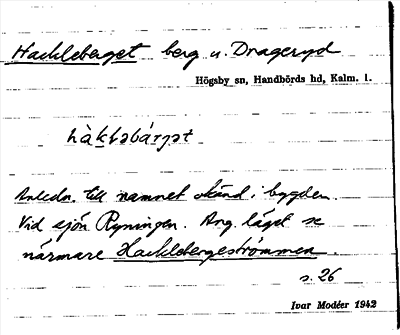 Hackleberget berg u. Drageryd
Högsby sn, Handbörds hd, Kalm. l.
hàkləbárjət
Anledn. till namnet okänd i bygden.
Vid sjön Ryningen. Ang. läget se
närmare Hacklebergeströmmen.
s. 26
Ivar Modéer 1942